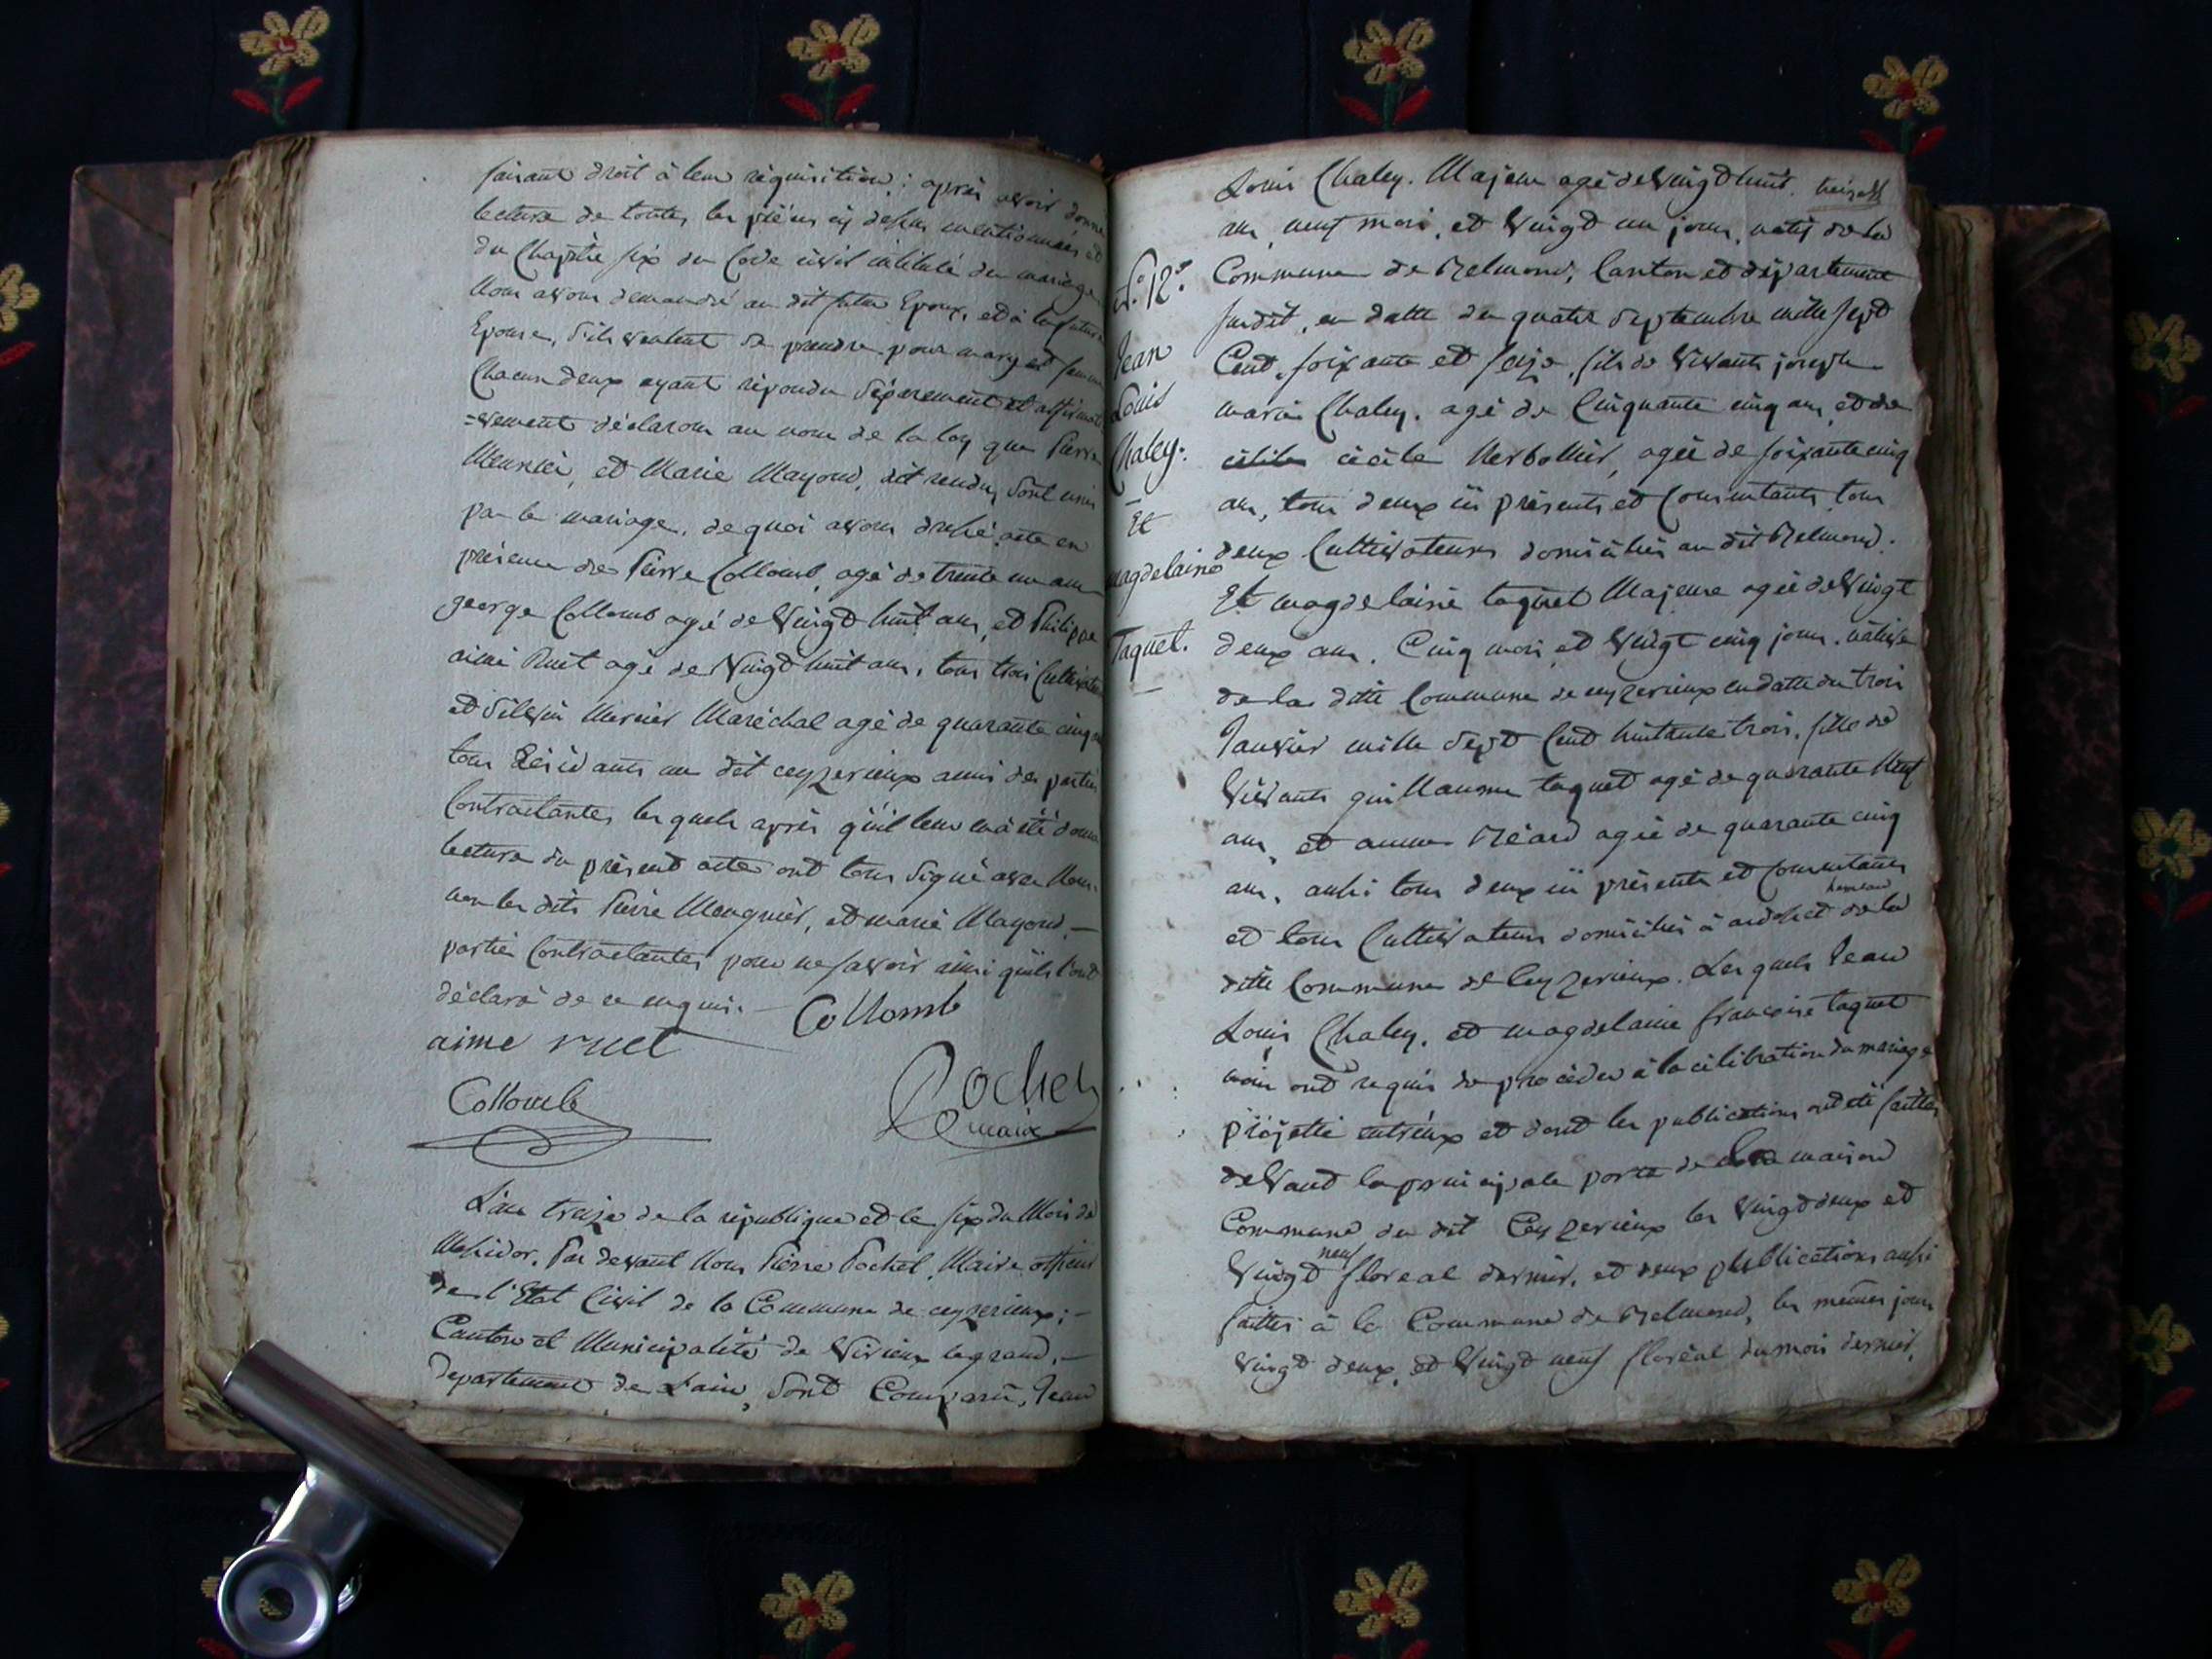 faisant droit à leur réquisition; après avoir donné
lecture de toutes les pièces cy dessus mentionnées et
du Chapitre six du Code civil intitulé du mariage
Nous avons demandé au dit futur Epoux, et à la future
Epouse, s'ils veulent se prendre pour mary et femme
Chacun deux ayant répondu séparement et affirmati
=vement déclarons au nom de la loy que Pierre
Meunier, et Marie Mayond, dit rendu, sont unis
par le mariage. de quoi avons dressé acte en
présence de Pierre Collomb, agé de trente un ans
george Collomb agé de Vingt huit ans, et Philippe
aimé Ruet agé de Vingt huit ans, tous trois Cultivate
et Silvin Mernier Maréchal agé de quarante cinq a
tous Résidants au dit ceyzerieux amis des parties
Contractantes les quels après qu'il leur en à été donné
lecture du présent acte ont tous signé avec Nous.
non les dits Pierre Meugnier, et marie Mayond. —
parties Contractantes pour ne savoir ainsi qu'ils l'ont
déclaré de ce enquis. — Collomb
aime ruet
Collomb
Pochet
maire
L'an treize de la république et le six du Mois de
Messidor. Par devant Nous Pierre Pochet, Maire officier
de l'Etat Civil de la Commune de ceyzerieux; —
Canton et Municipalité de Virieux legrand. —
departement de Lain, sont Comparu, Jean
N°. 12.
Jean
Louis
Chaley.
Et
magdelaine
Taquet.
Louis Chaley. Majeur agé de Vingt huit
ans, neuf mois, et Vingt un jours, natif de la
Commune de Belmond, Canton et département
susdit, en datte du quatre Septembre mille sept
Cent soixante et seize, fils de Vivants joseph
marie Chaley. agé de Cinquante cinq ans, et de
cécile Nerbollier, agée de soixante cinq
ans, tous deux ici présents et Consentants, tous
deux Cultivateurs domiciliés au dit Belmond.
Et magdelaine taquet Majeure agée de Vingt
deux ans. Cinq mois et Vingt cinq jours. native
de la ditte Commune de ceyzerieux en datte du trois
Janvier mille Sept Cent huitante trois, fille de
Vivants guillaume taquet agé de quarante Neuf
ans, et anne Béard agée de quarante cinq
ans, aussi tous deux ici présents et Consentants
et tous Cultivateurs domiciliés à ardosset hameau de la
ditte Commune de Ceyzerieux. Les quels Jean
Louis Chaley, et magdelaine françoise taquet
nous ont requis de procéder à la célébration du mariage
projetté entréux et dont les publications ont été faittes
devant la principale porte de la maison
Commune du dit Ceyzerieux les Vingt deux et
Vingt neuf floreal dernier, et deux publications aussi
faittes à la Commune de Belmond, les mêmes jours
Vingt deux, et Vingt neuf floréal du mois dernier,